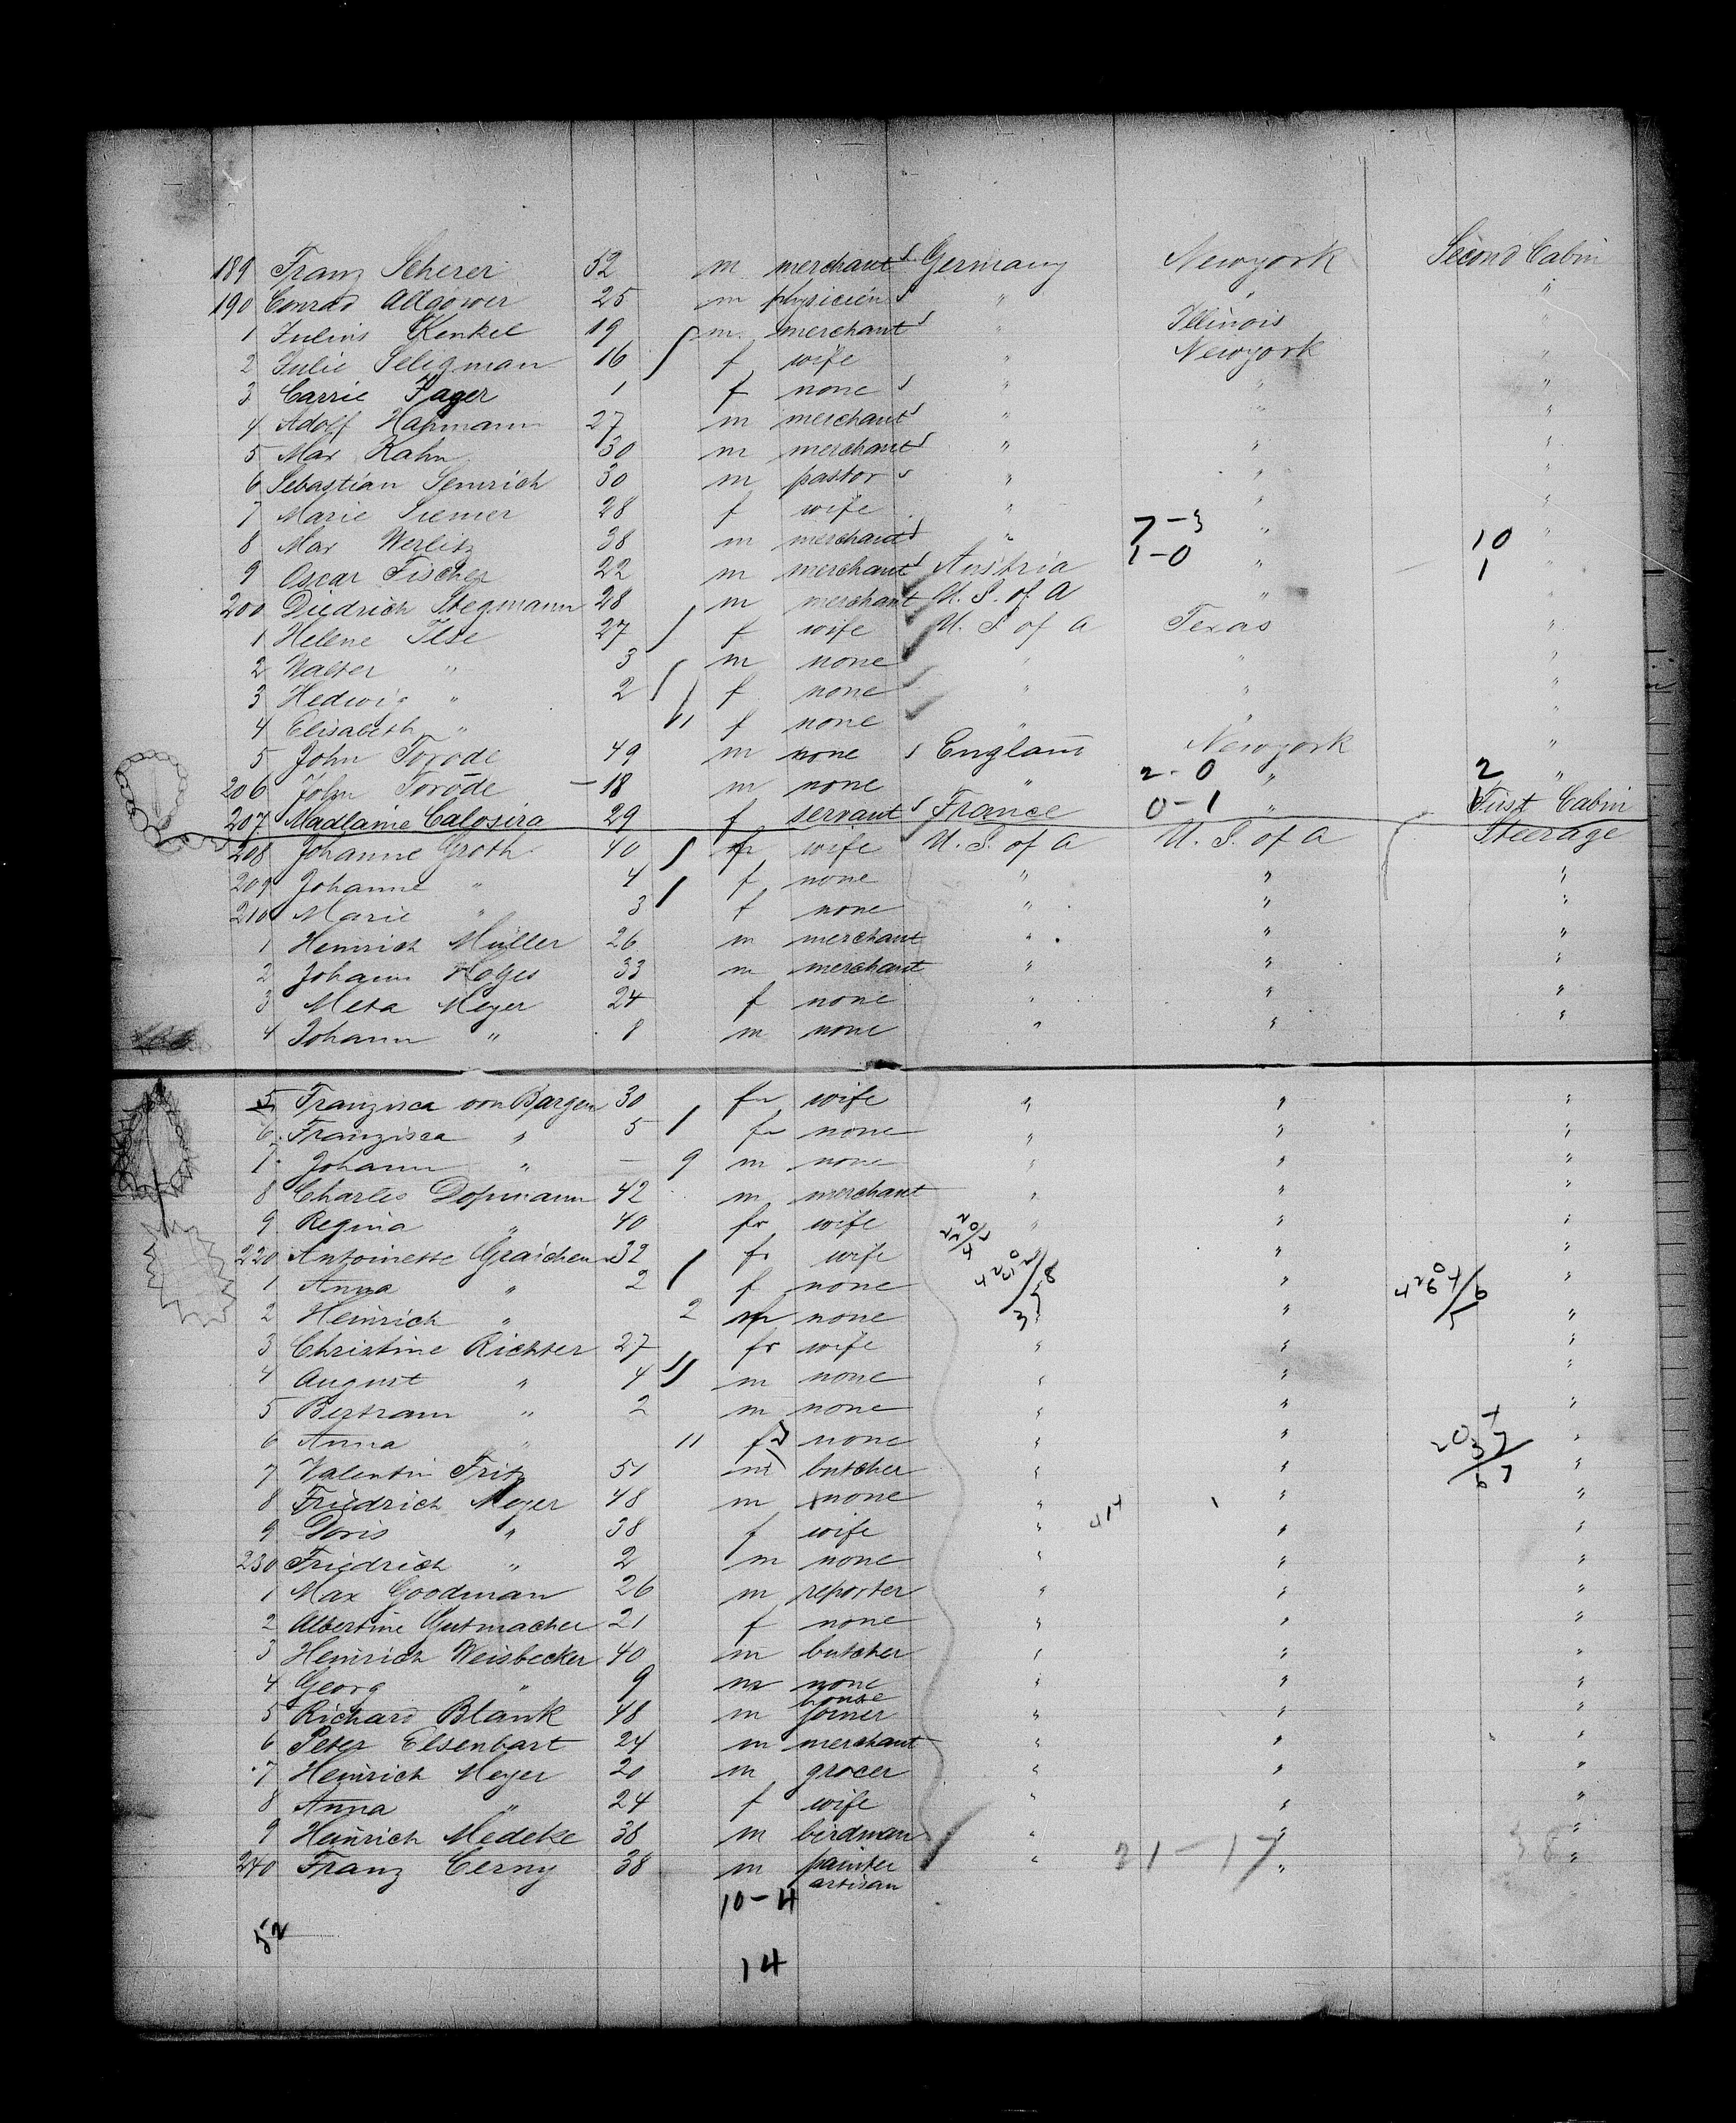 189 Franz Scherer 52 m merchant Germany Newyork Second Cabin
190 Conrad Allgöwer 25 m physicién " " "
1 Julius Kenkel 19 m merchant " Illinois "
2 Julie Seligman 16 f wife " Newyork "
3 Carrie Hager 1 f none " " "
4 Adolf Hapmann 27 m merchant " " "
5 Max Kahn 30 m merchant " " "
6 Sebastian Semrich 30 m pastor " " "
7 Marie Siemer 28 f wife " " "
8 Max Werlitz 38 m merchant " 7-3 " 10 "
9 Oscar Fischer 22 m merchant Austria 1-0 " 1 "
200 Diedrich Stegmann 28 m merchant U. S. of A " "
1 Helene Ilse 27 f wife U. S of A Texas "
2 Walter " 3 m none " " "
3 Hedwig " 2 f none " " "
4 Elisabeth " 11 f none " " "
5 John Torode 49 m none England Newyork "
206 John Torode 18 m none " 2-0 " 2 "
207 Madlaine Calosira 29 f servant France 0-1 " First Cabin
208 Johanne Groth 40 f wife U. S. of A U. S. of A Steerage
209 Johanne " 4 f none " " "
210 Marie " 3 f none " " "
1 Heinrich Müller 26 m merchant " " "
2 Johann Holjes 33 m merchant " " "
3 Meta Meyer 24 f none " " "
4 Johann " 8 m none " " "
5 Franzisca von Bargen 30 f wife " " "
6 Franzisca " 5 f none " " "
7 Johann " — 9 m none " " "
8 Charles Dopmann 42 m merchant " " "
9 Regina " 40 f wife " " "
220 Antoinette Graichen 32 f wife " "
1 Anna " 2 f none " "
2 Heinrich " 2 m none " "
3 Christine Richter 27 f wife " " "
4 August " 4 m none " " "
5 Bertram " 2 m none " " "
6 Anna " 11 f none " " "
7 Valentin Fritz 51 m butcher " " "
8 Friedrich Meyer 48 m none " " "
9 Doris " 38 f wife " " "
230 Friedrich " 2 m none " " "
1 Max Goodman 26 m reporter " " "
2 Albertine Gutmacher 21 f none " " "
3 Heinrich Weisbecker 40 m butcher " " "
4 Georg " 9 m none " " "
5 Richard Blank 48 m house joiner " " "
6 Peter Elsenbart 24 m merchant " " "
7 Heinrich Meyer 20 m grocer " " "
8 Anna " 24 f wife " " "
9 Heinrich Medeke 38 m birdman " " "
240 Franz Cerny 38 m painter artisan " 21-17 " 38 "
10-4
52
14